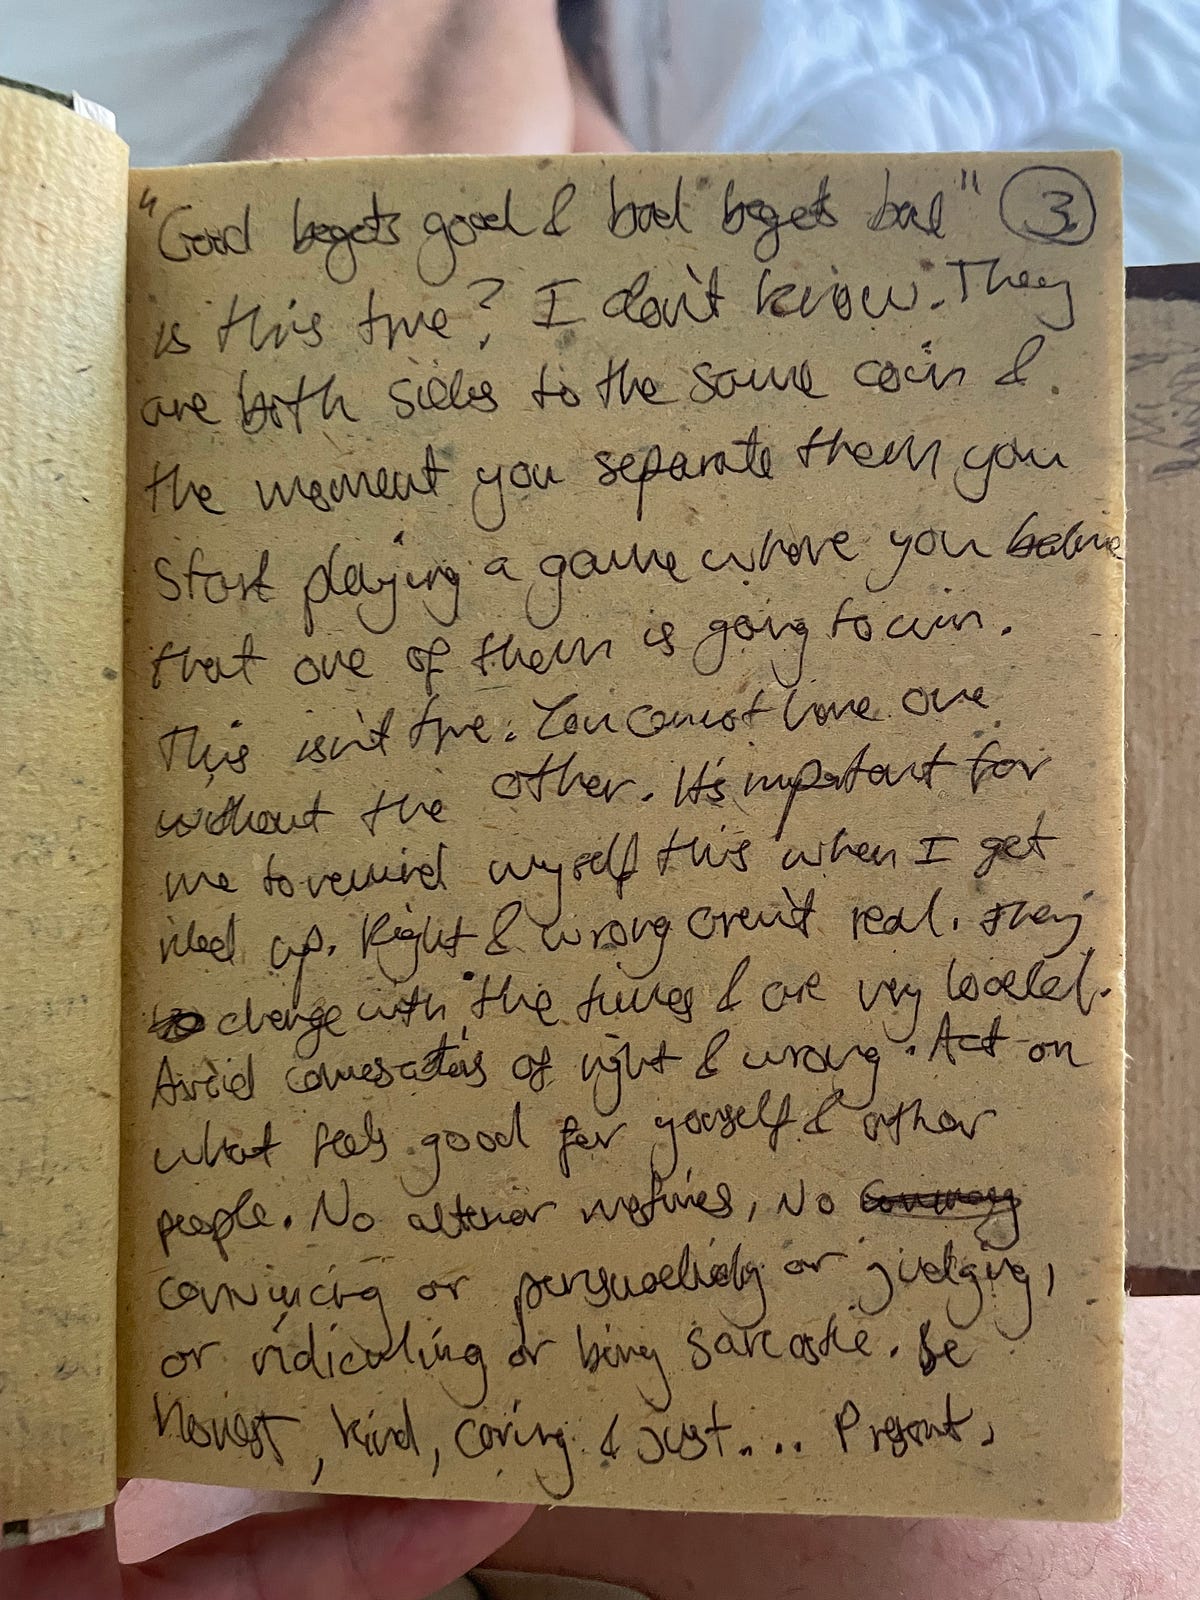 "Good begets good & bad begets bad" ③
is this true? I don't know. They
are both sides to the same coin &
the moment you separate them you
start playing a game where you believe
that one of them is going to win.
This isn't true. You cannot have one
without the other. It's important for
me to remind myself this when I get
riled up. Right & wrong aren't real. They
change with the times & are very loaded.
Avoid conversations of right & wrong. Act on
what feels good for yourself & other
people. No alterior motives, No
convincing or persuading or judging,
or ridiculing or being sarcastic. Be
honest, kind, caring & just.... Present,